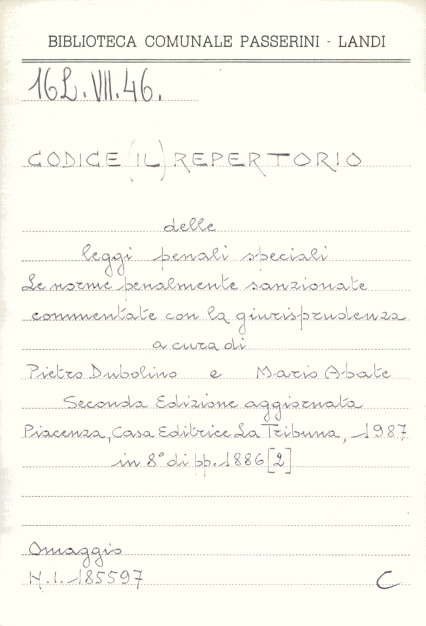 BIBLIOTECA COMUNALE PASSERINI - LANDI
16L.VII.46.
CODICE (IL) REPERTORIO
delle
leggi penali speciali
Le norme penalmente sanzionate
commentate con la giurisprudenza
a cura di
Pietro Dubolino e Mario Abate
Seconda Edizione aggiornata
Piacenza, Casa Editrice La Tribuna, 1987
in 8° di pp. 1886[2]
Omaggio
N.I. 185597 C